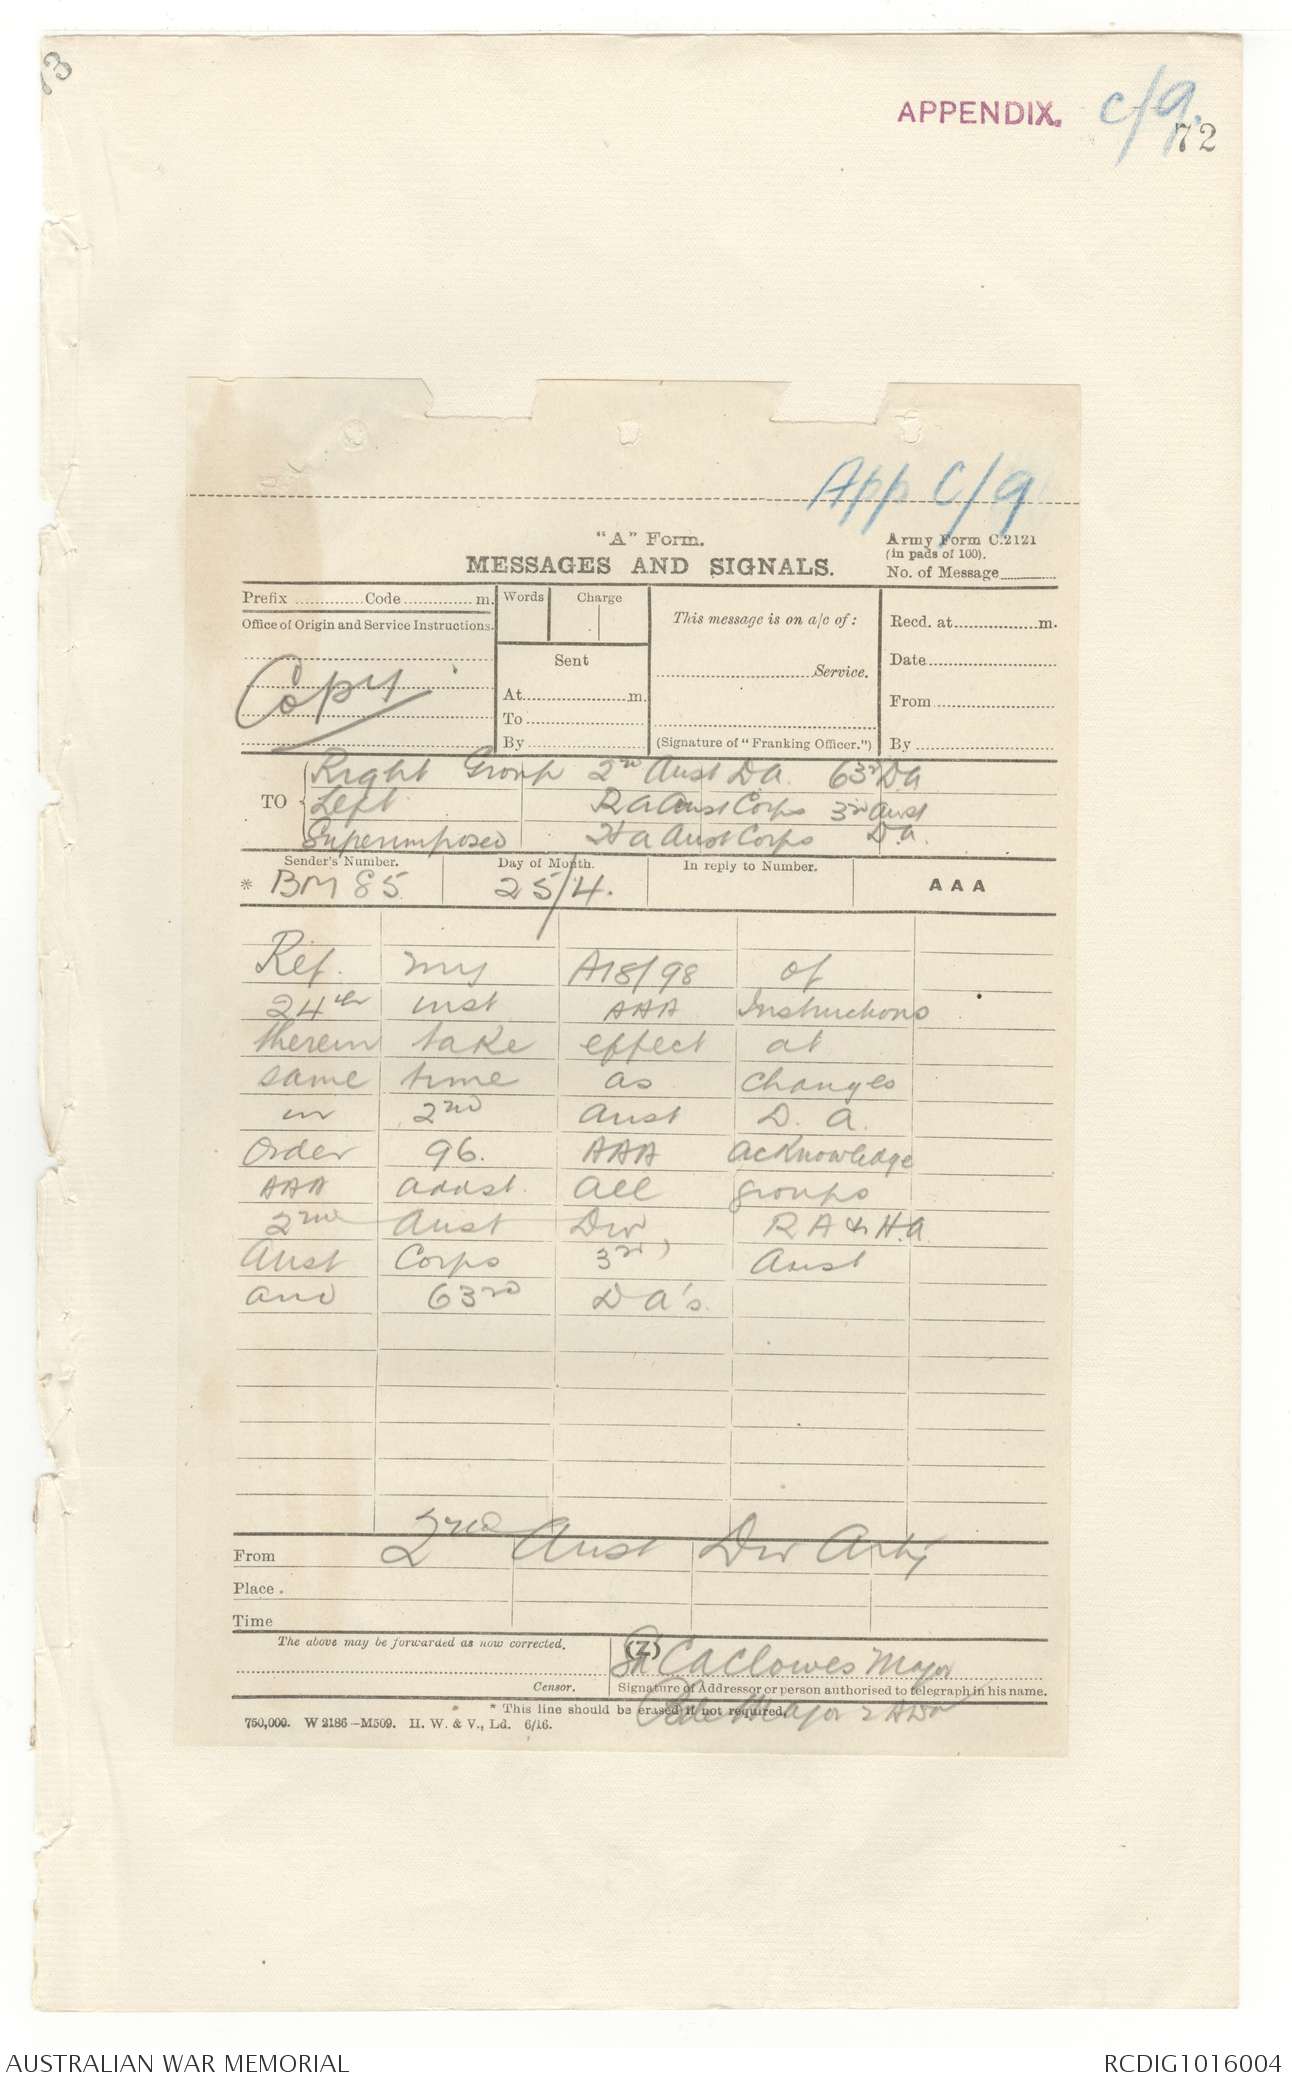 73
APPENDIX. C/9.
72
App C/9
"A" Form.
Army Form C.2121
(in pads of 100).
MESSAGES AND SIGNALS.
No. of Message
Prefix Code m.
Words Charge
This message is on a/c of:
Recd. at m.
Office of Origin and Service Instructions.
Copy
Sent
At m.
To
By
Service.
(Signature of "Franking Officer.")
Date
From
By
TO
Right Group 2nd Aust DA. 63rd DA
Left RA Aust Corps 3rd Aust
Superimposed HA Aust Corps D.A.
Sender's Number. Day of Month. In reply to Number.
* BM 85 25/4. AAA
Ref. my A18/98 of
24th inst AAA Instructions
therein take effect at
same time as changes
in 2nd Aust D. A.
Order 96. AAA acknowledge
AAA addst. all groups
2nd Aust Div RA & H.A.
Aust Corps 3rd, Aust
and 63rd DA's.
From 2nd Aust Div Arty
Place.
Time
The above may be forwarded as now corrected. (Z)
Sd CA Clowes Major
Censor. Signature of Addressor or person authorised to telegraph in his name.
* This line should be erased if not required.
Bde Major 2 ADA
750,000. W 2186-M509. H. W. & V., Ld. 6/16.
AUSTRALIAN WAR MEMORIAL
RCDIG1016004